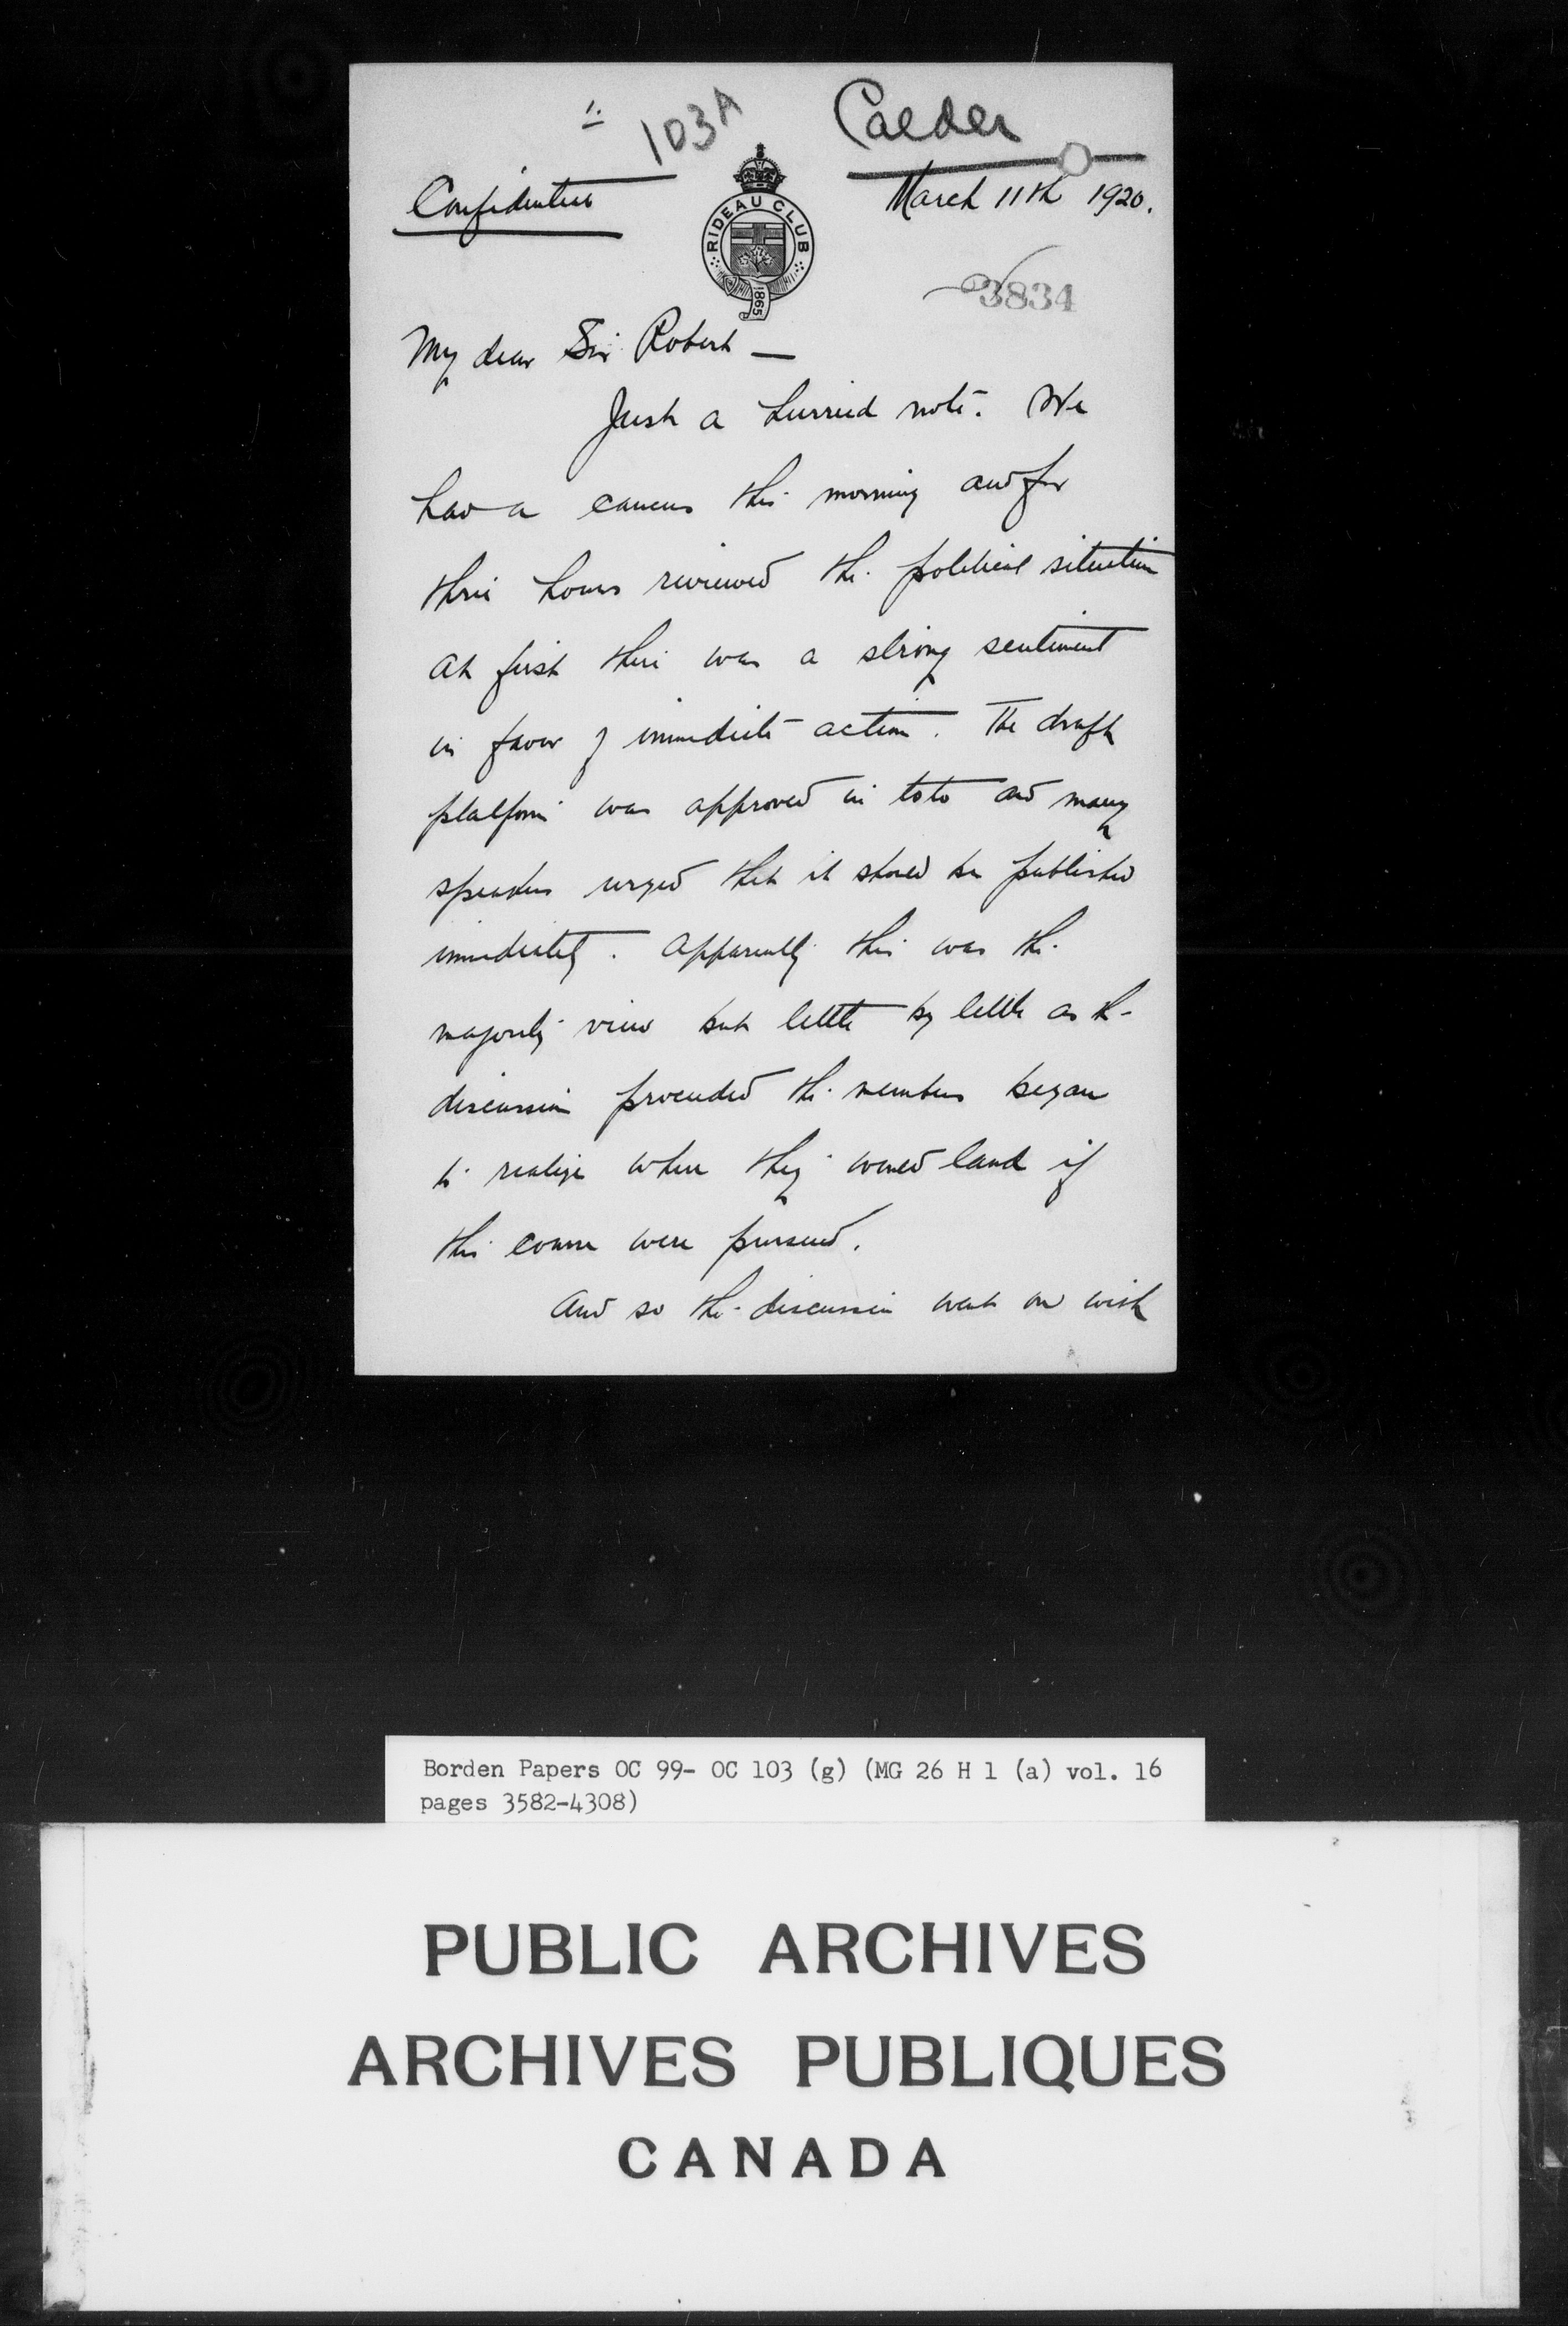 1.
103A
Calder
Confidential
March 11th 1920.
RIDEAU CLUB
1865
3834
My dear Sir Robert —
Just a hurried note. We
had a caucus this morning and for
three hours reviewed the political situation
At first there was a strong sentiment
in favor of immediate action. The draft
platform was approved in toto and many
speakers urged that it should be published
immediately. Apparently this was the
majority view but little by little as the
discussion proceeded the members began
to realize where they would land if
this course were pursued.
And so the discussion went on with
Borden Papers OC 99- OC 103 (g) (MG 26 H 1 (a) vol. 16
pages 3582-4308)
PUBLIC ARCHIVES
ARCHIVES PUBLIQUES
CANADA